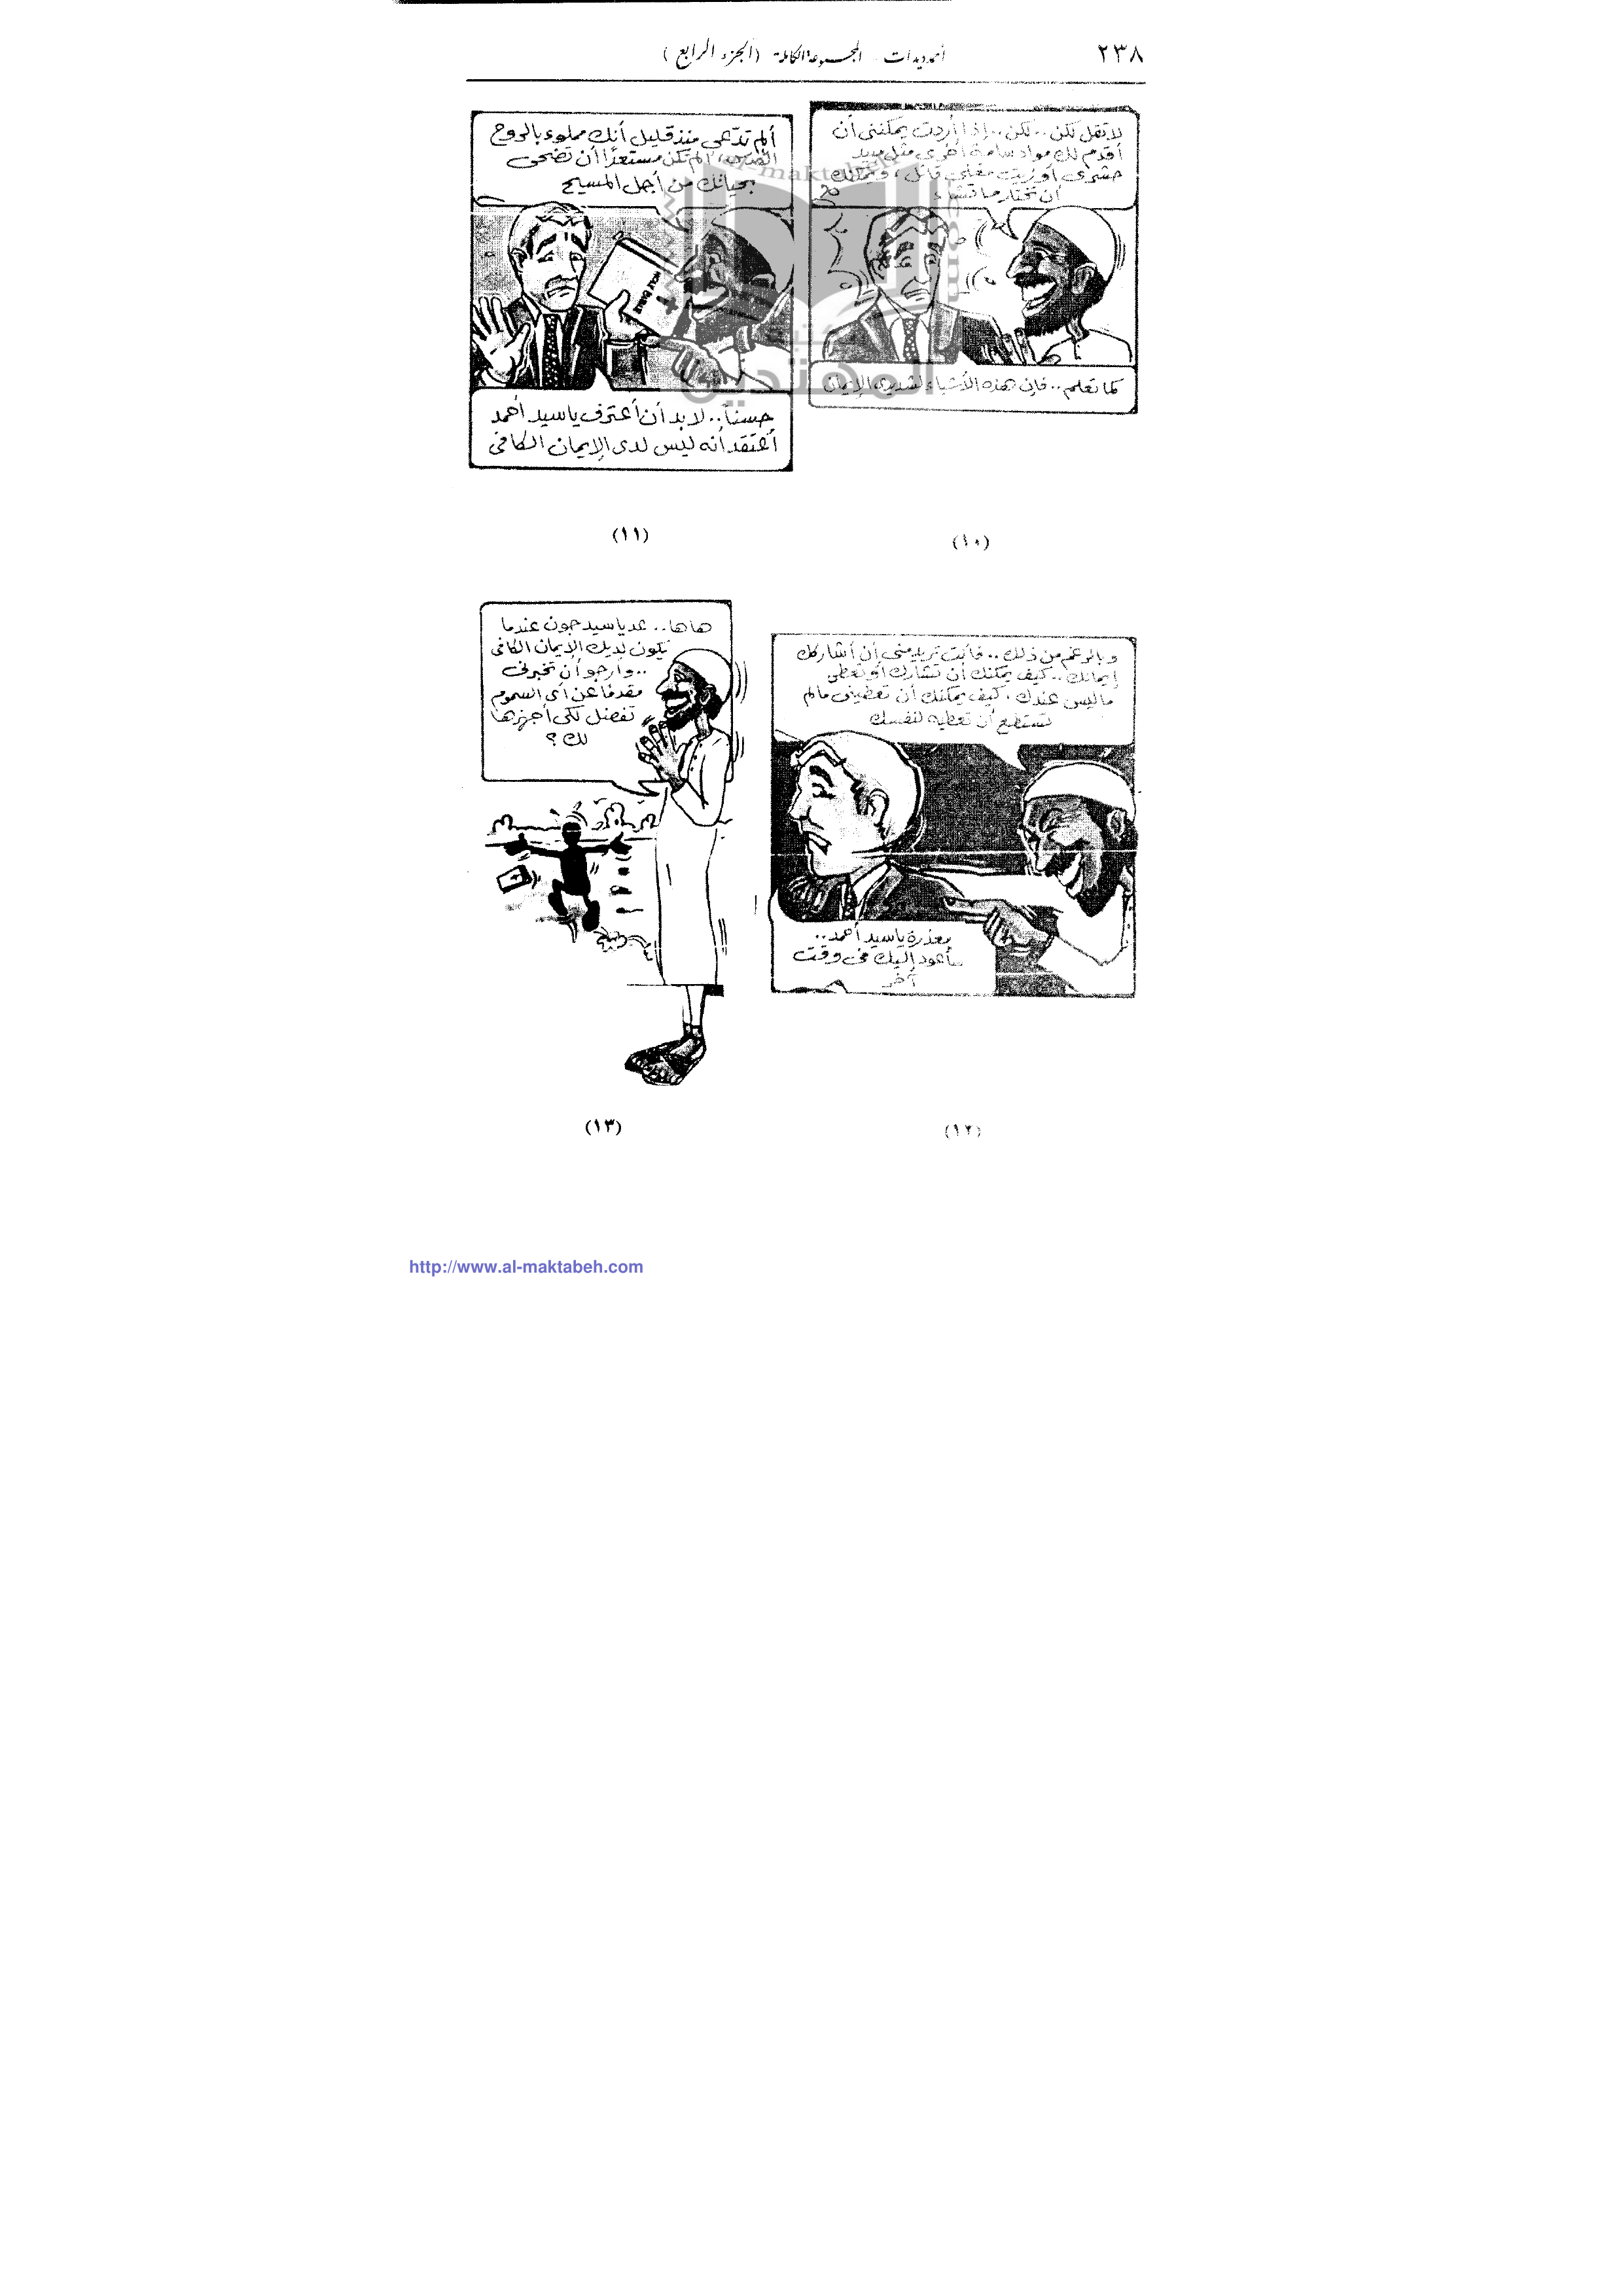 ٢٣٨
أحمد ديدات - المجموعة الكاملة (الجزء الرابع)
لا تقل لكن .. لكن .. إذا أردت يمكننى أن
أقدم لك مواد سامة أخرى مثل مبيد
حشرى أو زيت مغلى قاتل، ويمكنك
أن تختار ما تشاء
كما تعلم .. فإن هذه الأشياء لشديدى الإيمان
(١٠)
ألم تدّعى منذ قليل أنك مملوء بالروح
ألم تكن مستعدًا أن تضحى
بحياتك من أجل المسيح
HOLY BIBLE
حسناً .. لابد أن أعترف يا سيد أحمد
أعتقد أنه ليس لدى الإيمان الكافى
(١١)
وبالرغم من ذلك .. فأنت تريد منى أن أشاركك
إيمانك .. كيف يمكنك أن تشارك أو تعطى
ما ليس عندك، كيف يمكنك أن تعطينى مالم
تستطع أن تعطيه لنفسك
معذرة يا سيد أحمد ..
سأعود إليك فى وقت
آخر
(١٢)
هاها .. عد يا سيد جون عندما
يكون لديك الإيمان الكافى
.. وأرجو أن تخبرنى
مقدمًا عن أى السموم
تفضل لكى أجهزها
لك ؟
(١٣)
المهتدين
http://www.al-maktabeh.com